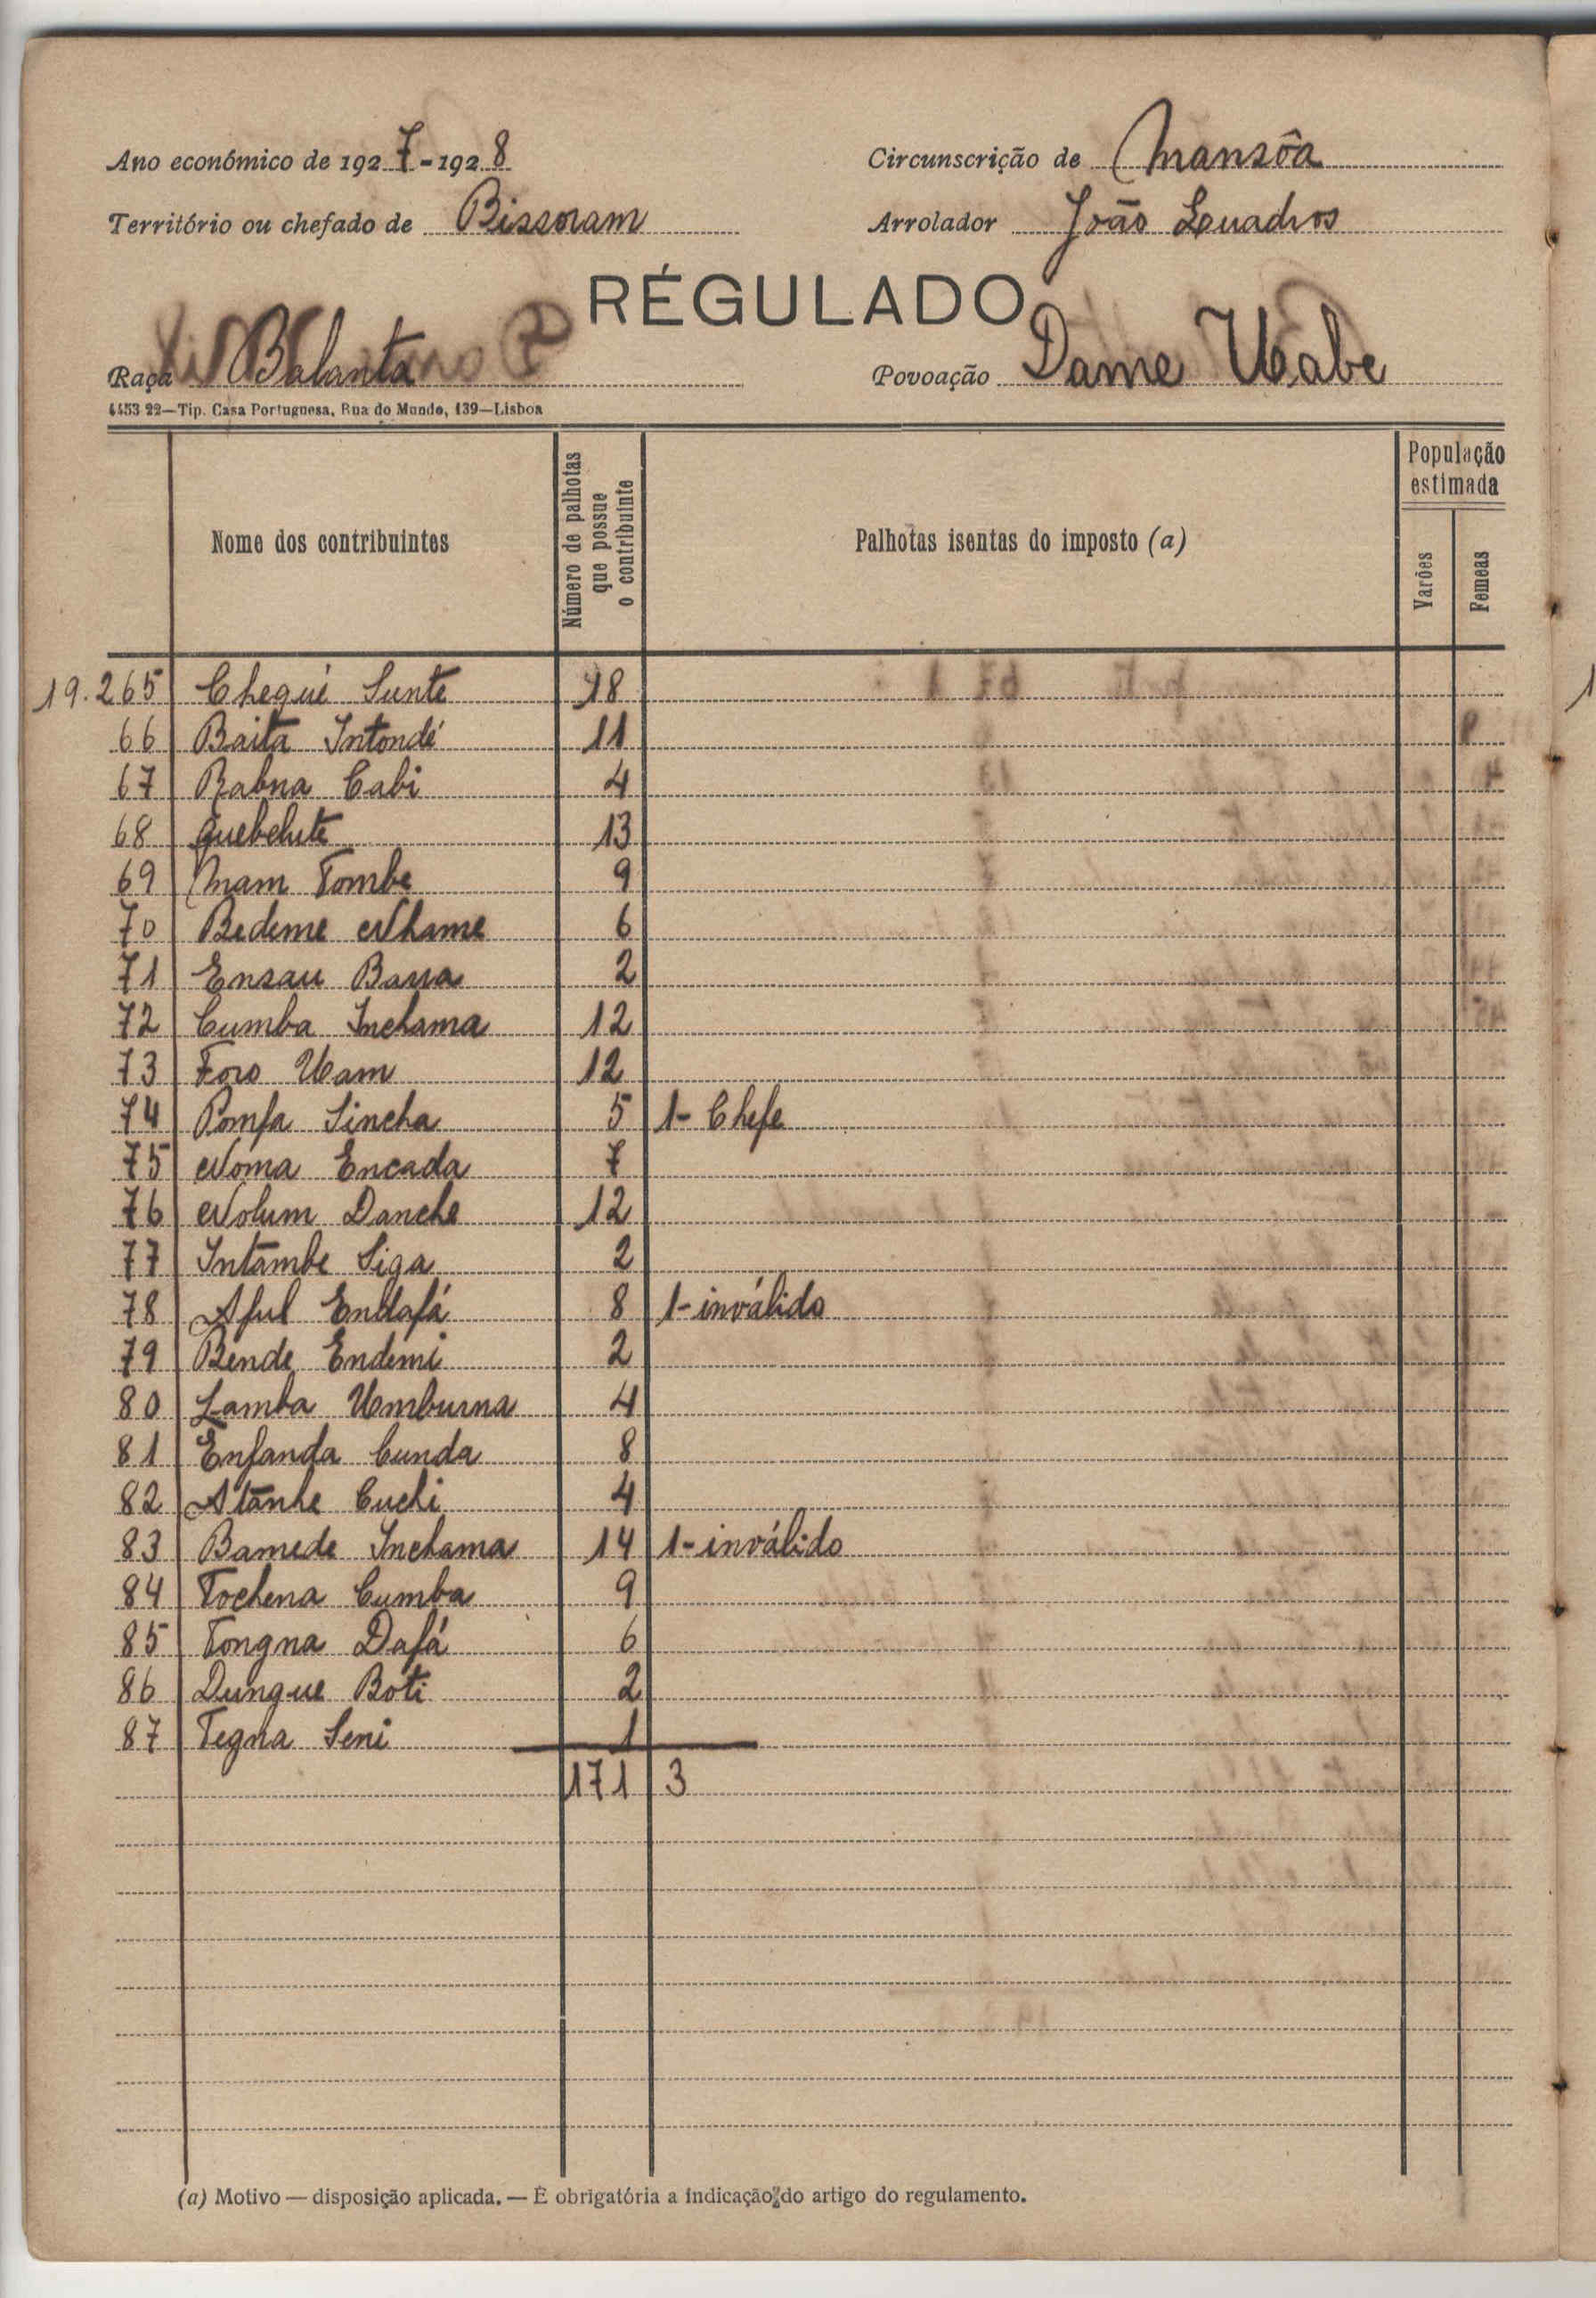 Ano económico de 1927-1928
Circunscrição de Mansôa
Território ou chefado de Bissoram
Arrolador João Quadros
RÉGULADO
Raça Balanta
Povoação Dame Uabe
4453 22—Tip. Casa Portuguesa, Rua do Mundo, 139—Lisboa
Nome dos contribuintes
Número de palhotas que possue o contribuinte
Palhotas isentas do imposto (a)
População estimada
Varões
Femeas
19.265 Chequé Sunte 18
66 Baita Intondé 11
67 Rabna Cabi 4
68 Quebelute 13
69 Mam Tombe 9
70 Bedeme Nhame 6
71 Ensau Barra 2
72 Cumba Inchama 12
73 Foro Uam 12
74 Pomfa Sincha 5 1- Chefe
75 Noma Encada 7
76 Nolum Danche 12
77 Intambe Siga 2
78 Aful Endafá 8 1-inválido
79 Bende Endemi 2
80 Lamba Umburna 4
81 Enfanda Cunda 8
82 Atanhe Cuchi 4
83 Bamede Inchama 14 1-inválido
84 Tochena Cumba 9
85 Tongna Dafá 6
86 Dungue Boti 2
87 Tegna Seni 1
171 3
(a) Motivo — disposição aplicada. — É obrigatória a indicação do artigo do regulamento.